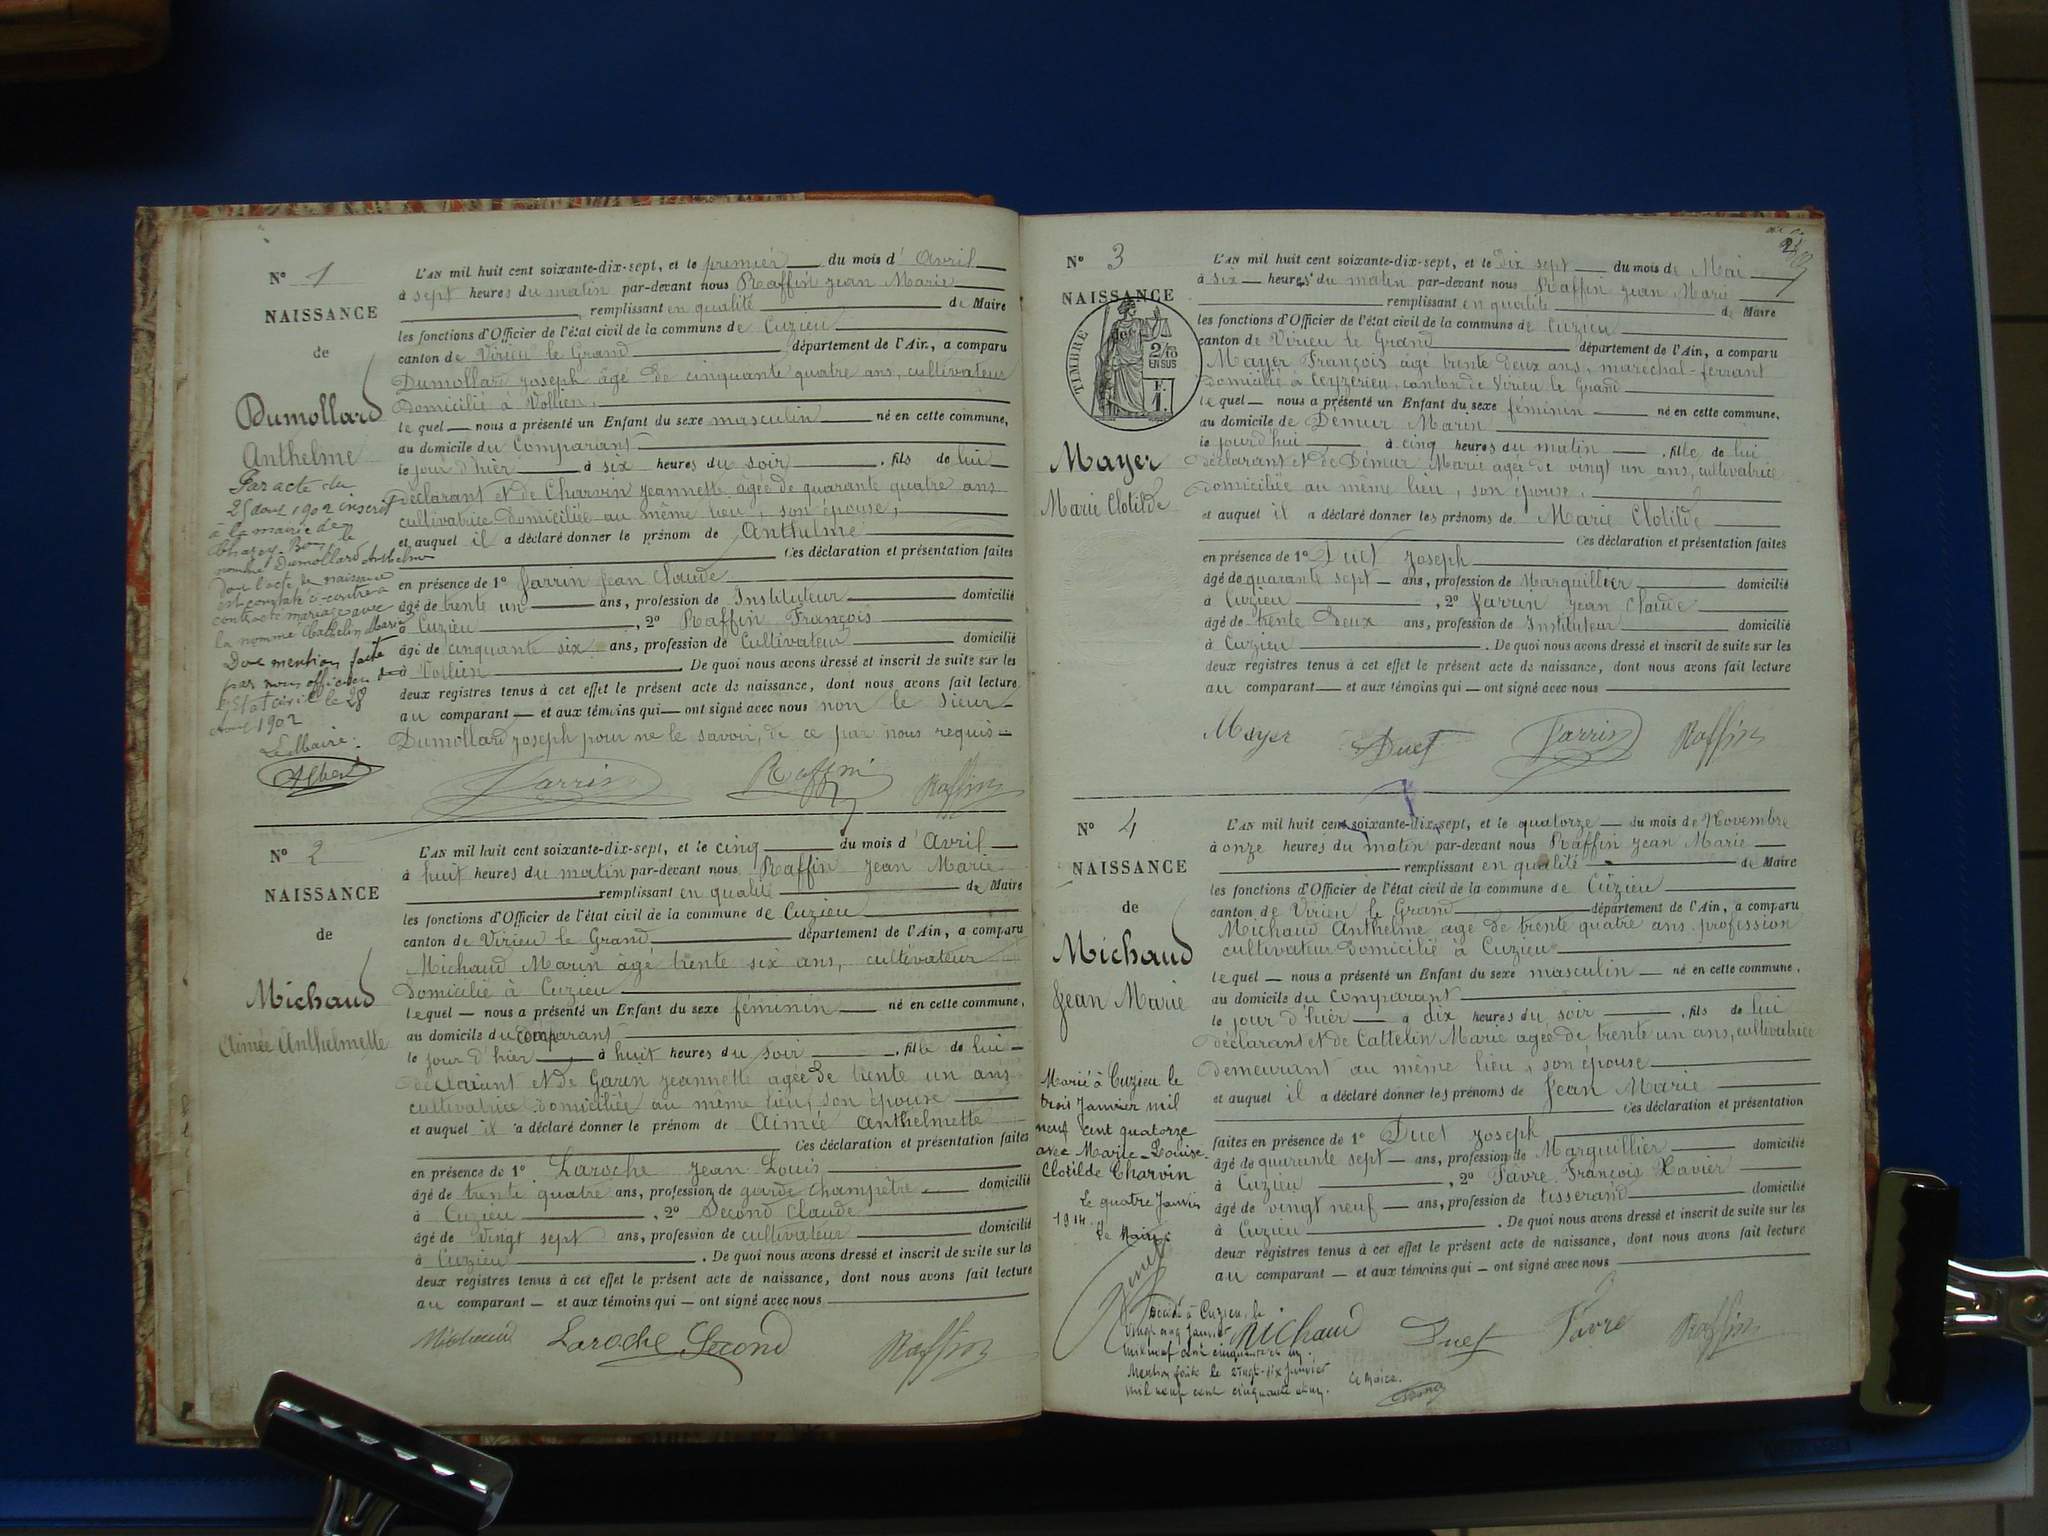 N° 1
NAISSANCE
de
Dumollard
Anthelme
Par acte du
25 août 1902 inscrit
à la mairie de
nommé Dumollard Anthelme
dont l'acte de naissance
est constaté ci-contre a
contracté mariage avec
la nommé Cathelin Marie
Dont mention faite
par nous officier de
l'état civil le 28
Août 1902
Le Maire
L'AN mil huit cent soixante-dix-sept, et le premier du mois d'Avril
à sept heures du matin par-devant nous Raffin Jean Marie
remplissant en qualité de Maire
les fonctions d'Officier de l'état civil de la commune de Cuzieu
canton de Virieu le Grand département de l'Ain, a comparu
Dumollard Joseph âgé de cinquante quatre ans, cultivateur
domicilié à Vollien,
lequel nous a présenté un Enfant du sexe masculin né en cette commune,
au domicile du Comparant
le jour d'hier à six heures du soir, fils de lui
déclarant et de Charvin Jeannette âgée de quarante quatre ans
cultivatrice domiciliée au même lieu, son épouse,
et auquel il a déclaré donner le prénom de Anthelme
Ces déclaration et présentation faites
en présence de 1° Jarrin Jean Claude
âgé de trente un ans, profession de Instituteur domicilié
à Cuzieu, 2° Raffin François
âgé de cinquante six ans, profession de Cultivateur domicilié
à Vollien. De quoi nous avons dressé et inscrit de suite sur les
deux registres tenus à cet effet le présent acte de naissance, dont nous avons fait lecture
au comparant et aux témoins qui ont signé avec nous non le sieur
Dumollard Joseph pour ne le savoir, de ce par nous requis
Jarrin Raffin Raffin
N° 2
NAISSANCE
de
Michaud
Aimée Anthelmette
L'AN mil huit cent soixante-dix-sept, et le cinq du mois d'Avril
à huit heures du matin par-devant nous Raffin Jean Marie
remplissant en qualité de Maire
les fonctions d'Officier de l'état civil de la commune de Cuzieu
canton de Virieu le Grand département de l'Ain, a comparu
Michaud Marin âgé trente six ans, cultivateur
domicilié à Cuzieu
lequel nous a présenté un Enfant du sexe féminin né en cette commune,
au domicile du comparant
le jour d'hier à huit heures du soir, fille de lui
déclarant et de Garin Jeannette agée de trente un ans
cultivatrice domiciliée au même lieu, son épouse
et auquel il a déclaré donner le prénom de Aimée Anthelmette
Ces déclaration et présentation faites
en présence de 1° Laroche Jean Louis
âgé de trente quatre ans, profession de garde champêtre domicilié
à Cuzieu, 2° Second Claude
âgé de vingt sept ans, profession de cultivateur domicilié
à Cuzieu. De quoi nous avons dressé et inscrit de suite sur les
deux registres tenus à cet effet le présent acte de naissance, dont nous avons fait lecture
au comparant et aux témoins qui ont signé avec nous
Michaud Laroche Second Raffin
N° 3
NAISSANCE
TIMBRE
2/10
EN SUS
F.
1.
Mayer
Marie Clotilde
L'AN mil huit cent soixante-dix-sept, et le dix sept du mois de Mai
à six heures du matin par-devant nous Raffin Jean Marie
remplissant en qualité de Maire
les fonctions d'Officier de l'état civil de la commune de Cuzieu
canton de Virieu le Grand département de l'Ain, a comparu
Mayer François âgé trente deux ans, maréchal-ferrant
domicilié à Ceyzerieu, canton de Virieu le Grand
lequel nous a présenté un Enfant du sexe féminin né en cette commune,
au domicile de Démur Marin
le jourd'hui à cinq heures du matin, fille de lui
déclarant et de Démur Marie agée de vingt un ans, cultivatrice
domiciliée au même lieu, son épouse,
et auquel il a déclaré donner les prénoms de Marie Clotilde
Ces déclaration et présentation faites
en présence de 1° Duet Joseph
âgé de quarante sept ans, profession de Marguillier domicilié
à Cuzieu, 2° Jarrin Jean Claude
âgé de trente deux ans, profession de Instituteur domicilié
à Cuzieu. De quoi nous avons dressé et inscrit de suite sur les
deux registres tenus à cet effet le présent acte de naissance, dont nous avons fait lecture
au comparant et aux témoins qui ont signé avec nous
Mayer Duet Jarrin Raffin
N° 4
NAISSANCE
de
Michaud
Jean Marie
Marié à Cuzieu le
trois Janvier mil
neuf cent quatorze
avec Marie-Louise
Clotilde Charvin
Le quatre Janvier
1914.
Le Maire
L'AN mil huit cent soixante-dix-sept, et le quatorze du mois de Novembre
à onze heures du matin par-devant nous Raffin Jean Marie
remplissant en qualité de Maire
les fonctions d'Officier de l'état civil de la commune de Cuzieu
canton de Virieu le Grand département de l'Ain, a comparu
Michaud Anthelme agé de trente quatre ans profession
cultivateur domicilié à Cuzieu
lequel nous a présenté un Enfant du sexe masculin né en cette commune,
au domicile du comparant
le jour d'hier à dix heures du soir, fils de lui
déclarant et de Cattelin Marie agée de trente un ans, cultivatrice
demeurant au même lieu, son épouse
et auquel il a déclaré donner les prénoms de Jean Marie
Ces déclaration et présentation
faites en présence de 1° Duet Joseph
âgé de quarante sept ans, profession de Marguillier domicilié
à Cuzieu, 2° Favre François Xavier
âgé de vingt neuf ans, profession de tisserand domicilié
à Cuzieu. De quoi nous avons dressé et inscrit de suite sur les
deux registres tenus à cet effet le présent acte de naissance, dont nous avons fait lecture
au comparant et aux témoins qui ont signé avec nous
Michaud Duet Favre Raffin
Décédé à Cuzieu, le
vingt cinq Janvier
mil neuf cent cinquante et un.
Mention faite le vingt-six Janvier
mil neuf cent cinquante et un.
Le Maire.